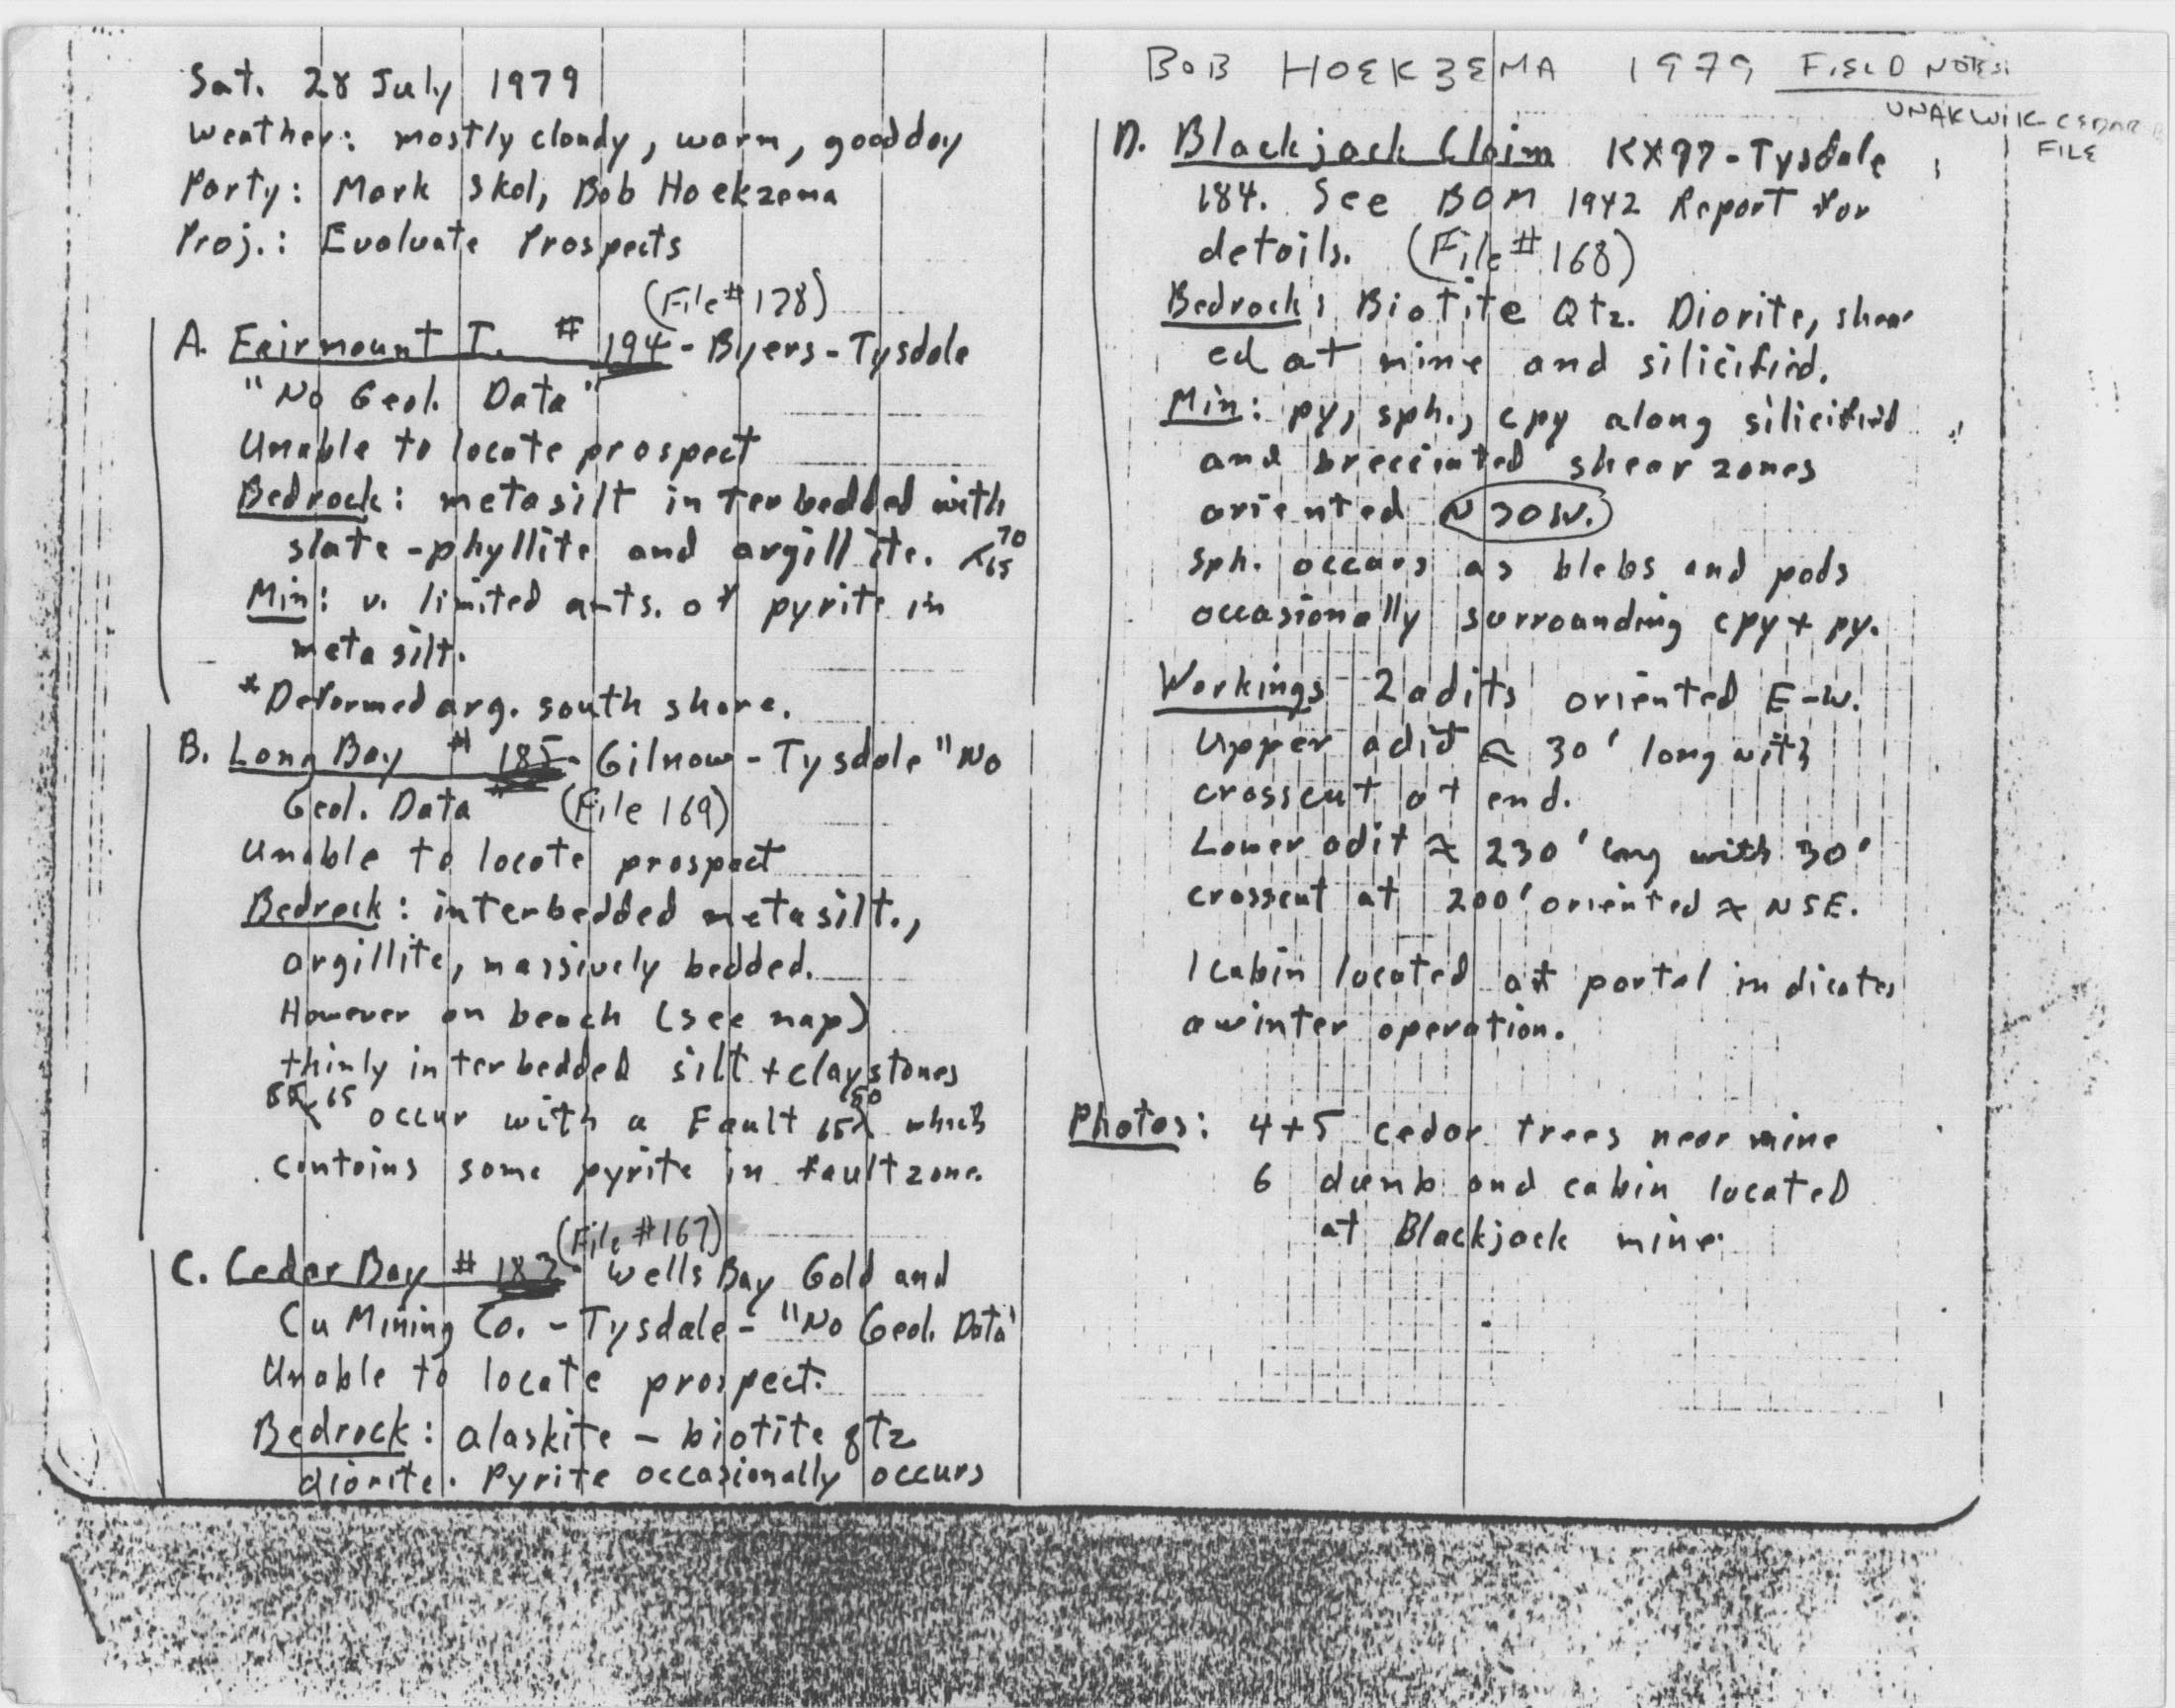 Sat. 28 July 1979
Weather: mostly cloudy, warm, good day
Party: Mark Skol, Bob Hoekzema
Proj.: Evaluate Prospects
(File # 178)
A. Fairmount I. # 194 - Byers - Tysdale
"No Geol. Data"
Unable to locate prospect
Bedrock: metasilt interbedded with
slate - phyllite and argillite. 70 65
Min: v. limited amts. of pyrite in
metasilt.
*Deformed arg. south shore.
B. Long Bay # 185 - Gilnow - Tysdale "No
Geol. Data" (File 169)
Unable to locate prospect
Bedrock: interbedded metasilt.,
argillite, massively bedded.
However on beach (see map)
thinly interbedded silt + claystones
65 occur with a Fault 65 50 which
contains some pyrite in fault zone.
(File #167)
C. Cedar Bay # 183 - Wells Bay Gold and
Cu Mining Co. - Tysdale - "No Geol. Data"
Unable to locate prospect.
Bedrock: alaskite - biotite qtz
diorite. Pyrite occasionally occurs
BOB HOEKZEMA 1979 FIELD NOTES
UNAKWIK - CEDAR B
FILE
D. Blackjack Claim KX97 - Tysdale
184. See BOM 1942 Report for
details. (File # 168)
Bedrock: Biotite Qtz. Diorite, shear
ed at mine and silicified.
Min: py, sph., cpy along silicified
and brecciated shear zones
oriented N 30 W.
sph. occurs as blebs and pods
occasionally surrounding cpy + py.
Workings 2 adits oriented E-W.
Upper adit ≈ 30' long with
crosscut at end.
Lower adit ≈ 230' long with 30'
crosscut at 200' oriented ≈ N5E.
1 cabin located at portal indicates
a winter operation.
Photos: 4+5 cedar trees near mine
6 dump and cabin located
at Blackjack mine.